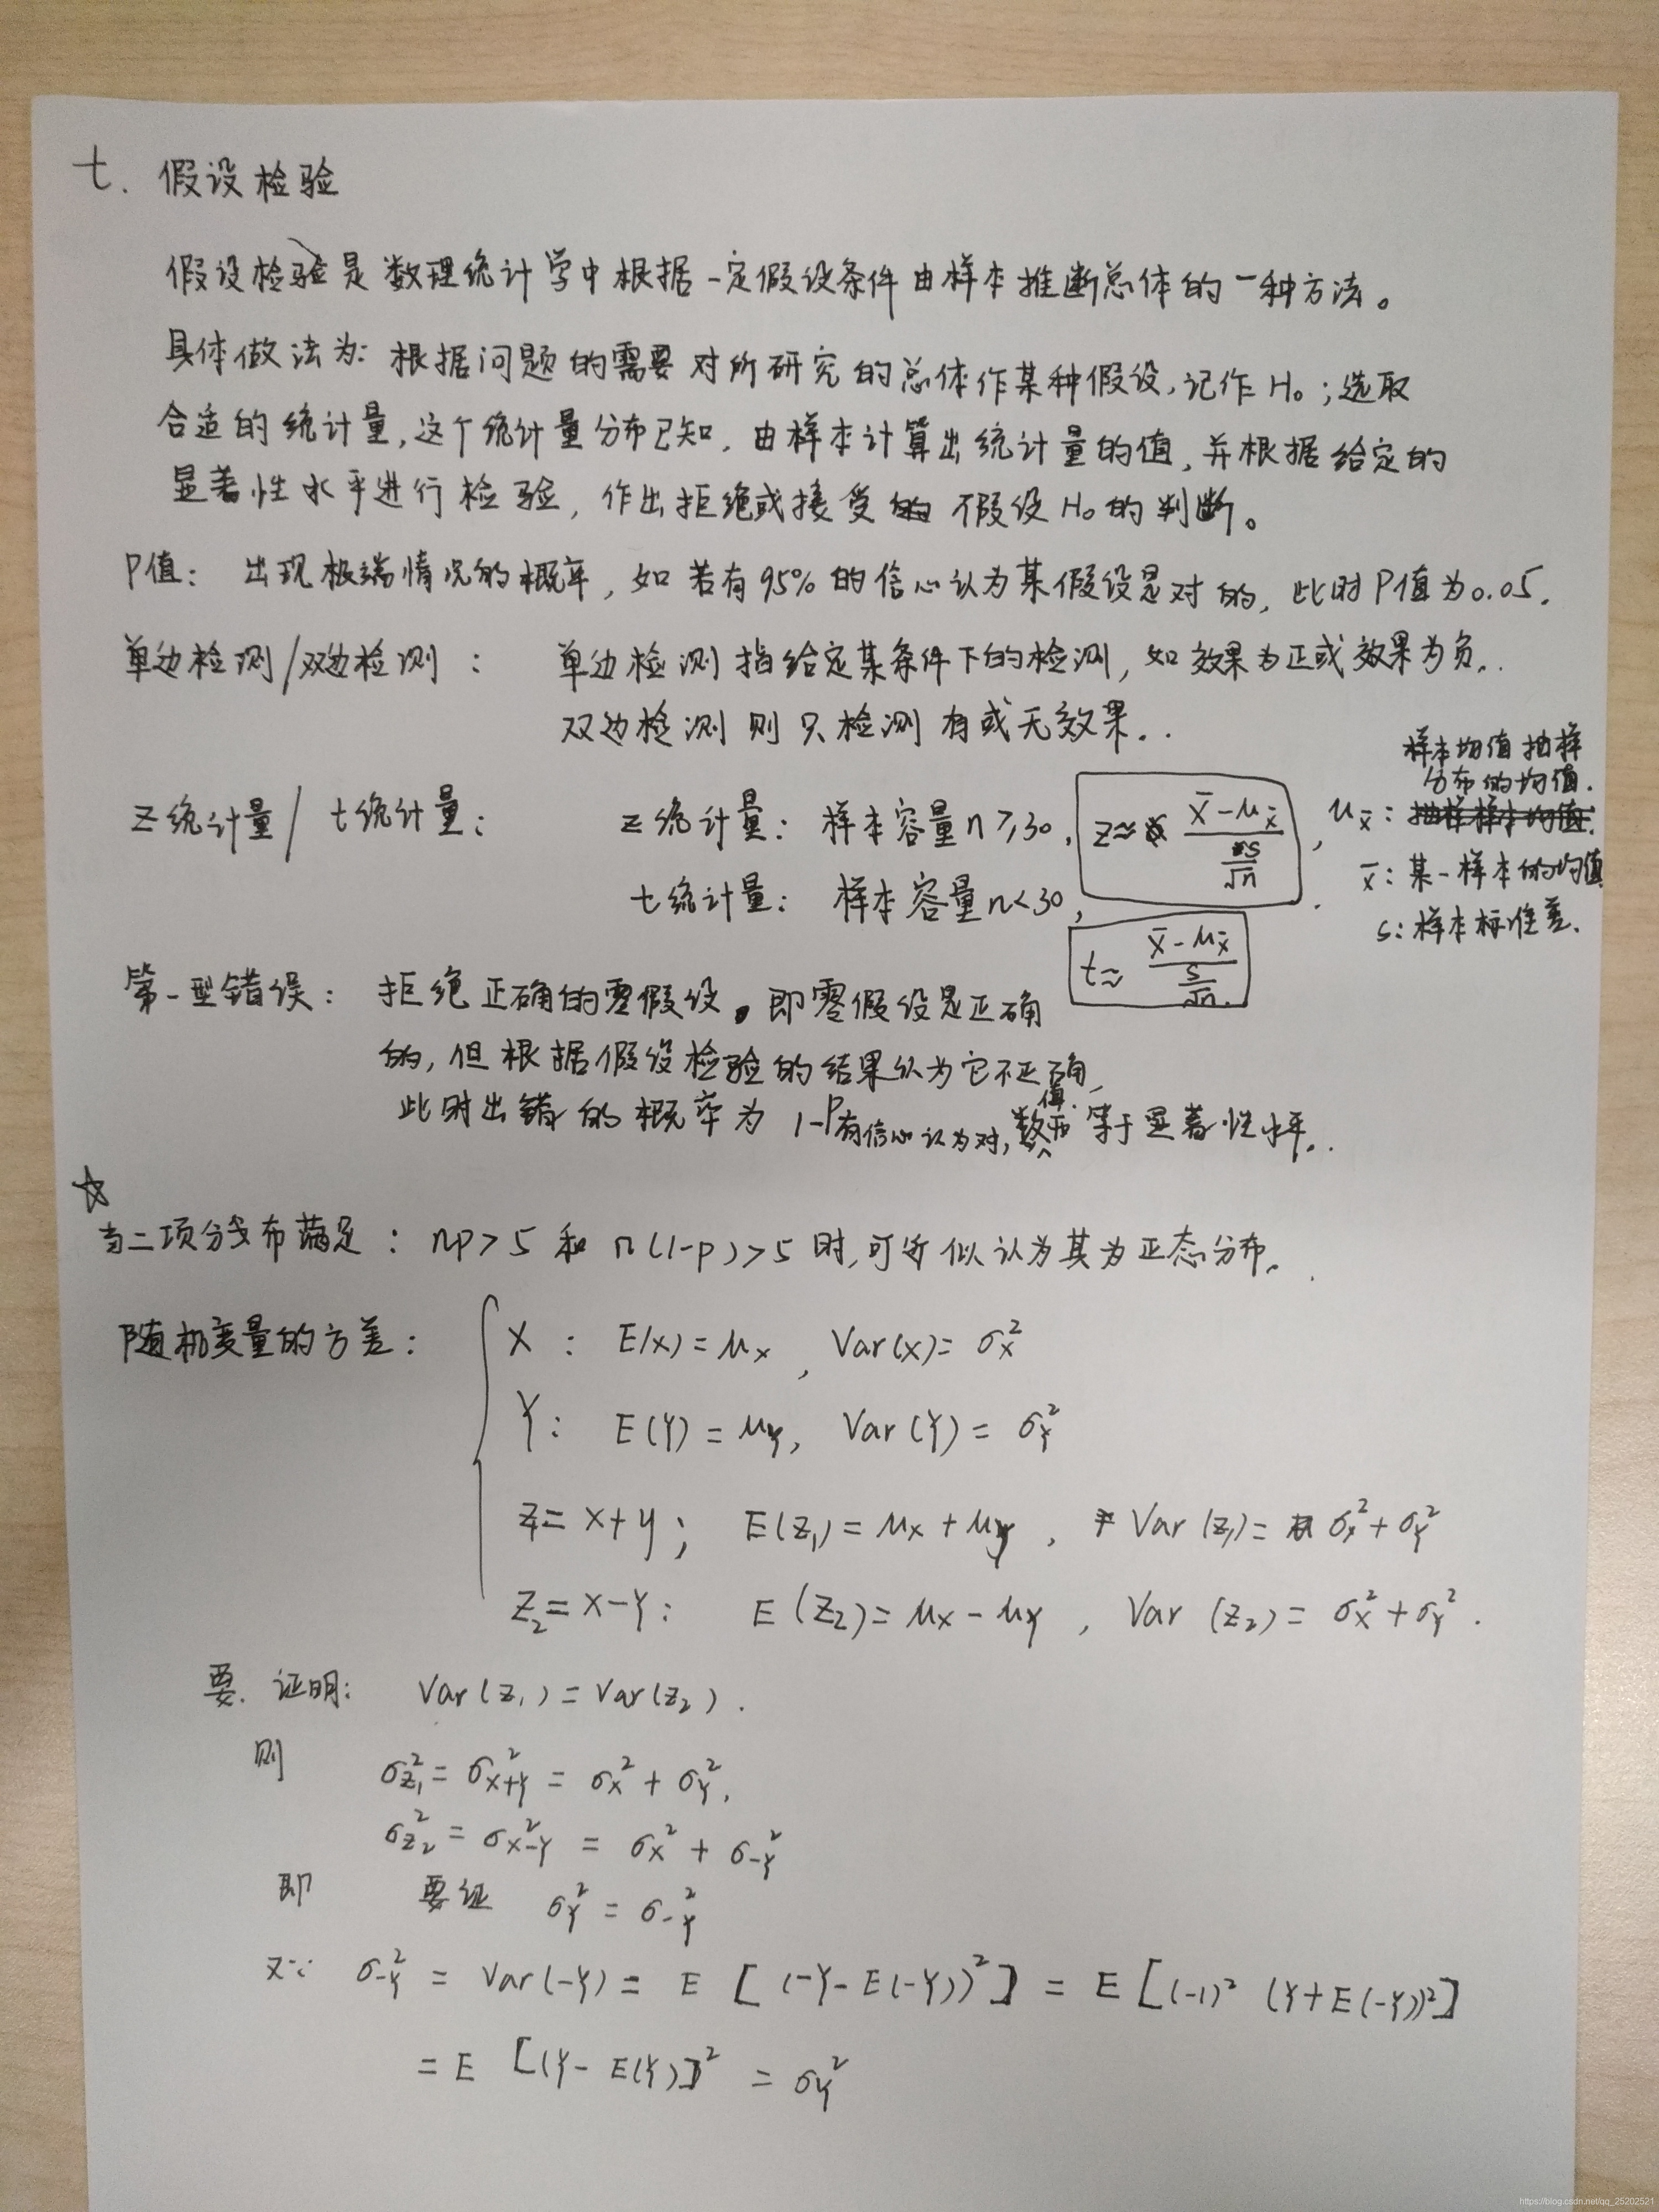 七. 假设检验
假设检验是数理统计学中根据一定假设条件由样本推断总体的一种方法。
具体做法为: 根据问题的需要对所研究的总体作某种假设, 记作 H₀; 选取
合适的统计量, 这个统计量分布已知, 由样本计算出统计量的值, 并根据给定的
显著性水平进行检验, 作出拒绝或接受的假设H₀的判断。
P值: 出现极端情况的概率, 如若有95%的信心认为某假设是对的, 此时P值为0.05.
单边检测/双边检测: 单边检测指给定某条件下的检测, 如效果为正或效果为负..
双边检测则只检测有或无效果..
Z统计量/t统计量: z统计量: 样本容量n≥30, z≈ (x̄-μx̄)/(s/√n),
μx̄: 样本均值抽样
分布的均值.
x̄: 某一样本的均值
s: 样本标准差.
t统计量: 样本容量n<30, t≈ (x̄-μx̄)/(s/√n)
第一型错误: 拒绝正确的零假设。即零假设是正确
的, 但根据假设检验的结果认为它不正确,
此时出错的概率为 1-P有信心认为对, 数值 等于显著性水平..
☆
当二项分布满足: np>5 和 n(1-p)>5 时, 可近似认为其为正态分布.
随机变量的方差: { X: E(x)=μx, Var(x)=σx²
Y: E(Y)=μY, Var(Y)=σY²
z₁=x+y; E(z₁)=μx+μy, Var(z₁)=σx²+σY²
Z₂=X-Y: E(Z₂)=μx-μY, Var(z₂)=σx²+σY².
要证明: Var(z₁)=Var(z₂).
则 σz₁²=σx+Y²=σx²+σY²,
σz₂²=σx-Y²=σx²+σ-Y²
即 要证 σY²=σ-Y²
又∵ σ-Y²=Var(-Y)=E[(-Y-E(-Y))²]=E[(-1)²(Y+E(-Y))²]
=E[(Y-E(Y)]²=σY²
https://blog.csdn.net/qq_25202521